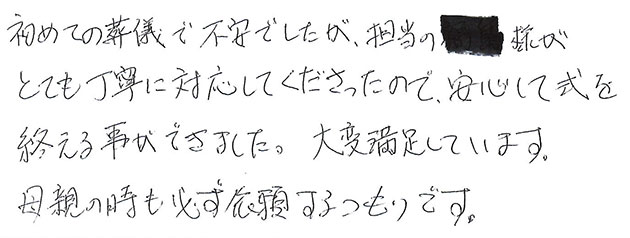 初めての葬儀で不安でしたが、担当の 様が
とても丁寧に対応してくださったので、安心して式を
終える事ができました。大変満足しています。
母親の時も必ず依頼するつもりです。